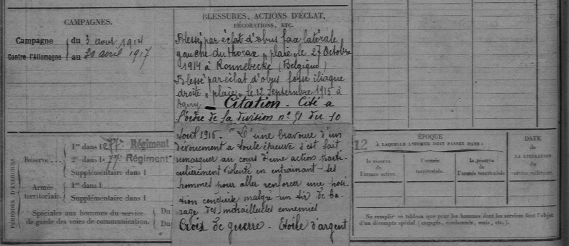 CAMPAGNES.
Campagne du 3 août 1914
Contre l'Allemagne au 20 avril 1917
BLESSURES, ACTIONS D'ÉCLAT,
DÉCORATIONS, ETC.
Blessé par éclat d'obus face latérale
gauche du thorax, plaie, le 27 Octobre
1914 à (Belgique)
Blessé par éclat d'obus fosse iliaque
droite, plaie, le 12 Septembre 1915 à
Citation. Cité à
l'ordre de la division n° 51 du 10
août 1916. "D'une bravoure d'un
dévouement à toute épreuve s'est fait
remarquer au cours d'une action parti-
culièrement violente en entraînant ses
hommes pour aller renforcer une posi-
tion conquise malgré un tir de bar-
rage des mitrailleuses ennemies
Croix de guerre. Etoile d'argent
Réserve
1° dans le Régiment
2° dans le Régiment
Supplémentaire dans l
Armée
territoriale.
1° dans l
Supplémentaire dans l
Spéciales aux hommes du service
de garde des voies de communication.
Du
Du
12
ÉPOQUE
À LAQUELLE L'HOMME DOIT PASSER DANS :
la réserve
de
l'armée active.
l'armée
territoriale.
la réserve
de
l'armée territoriale.
DATE
de
LA LIBÉRATION
du
service militaire.
Ne remplir ce tableau que pour les hommes dont les services font l'objet
d'un décompte spécial (engagés, condamnés, omis, etc.).